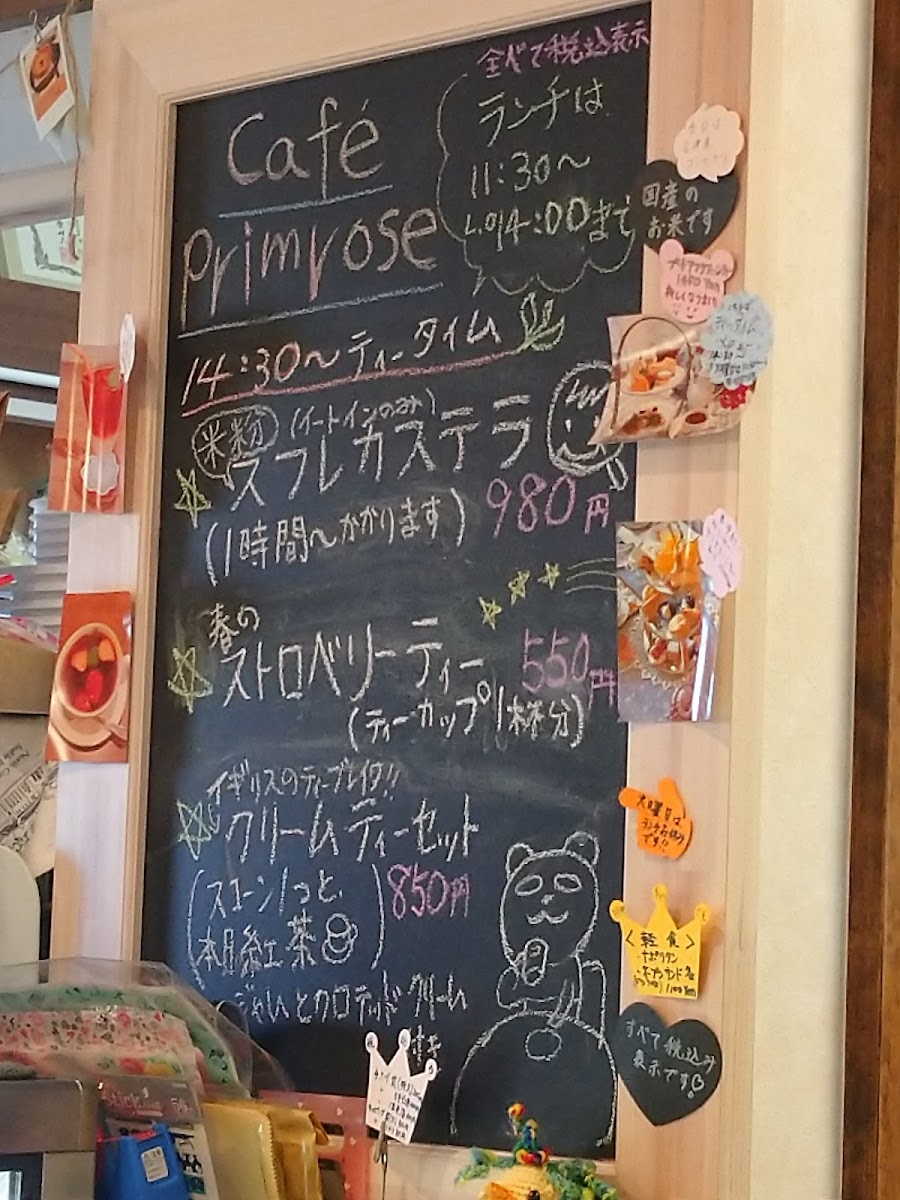 全べて税込表示
Café
Primrose
ランチは
11:30〜
L.O14:00まで
14:30〜ティータイム
米粉
(イートインのみ)
スフレカステラ
980円
(1時間〜かかります)
春の
ストロベリーティー
550円
(ティーカップ1杯分)
イギリスのティーブレイク!!
クリームティーセット
850円
(スコーン1つと、
本日紅茶)
ジャムとクロテッドクリーム
付き
国産の
お米です
火曜日は
ランチお休み
です!!
<軽食>
ナポリタン
すべて税込み
表示です
Stick